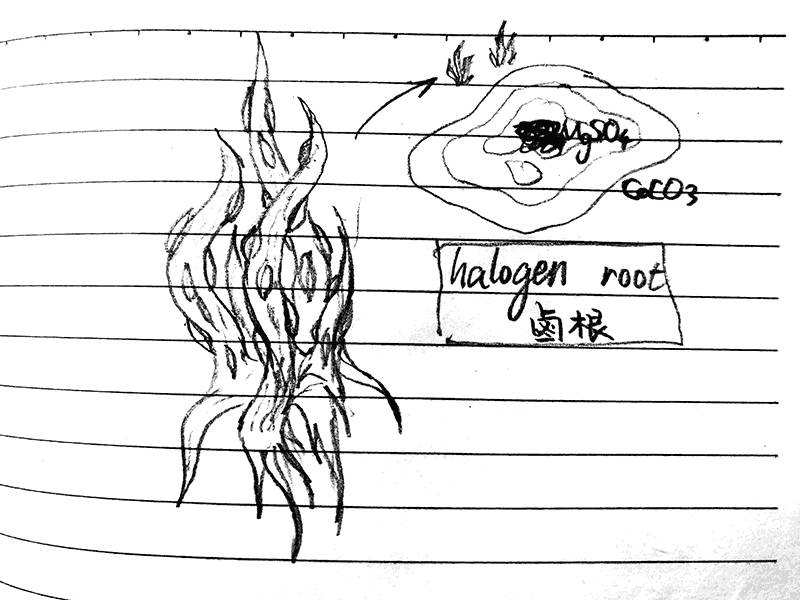 MgSO4
CaCO3
halogen root
鹵根